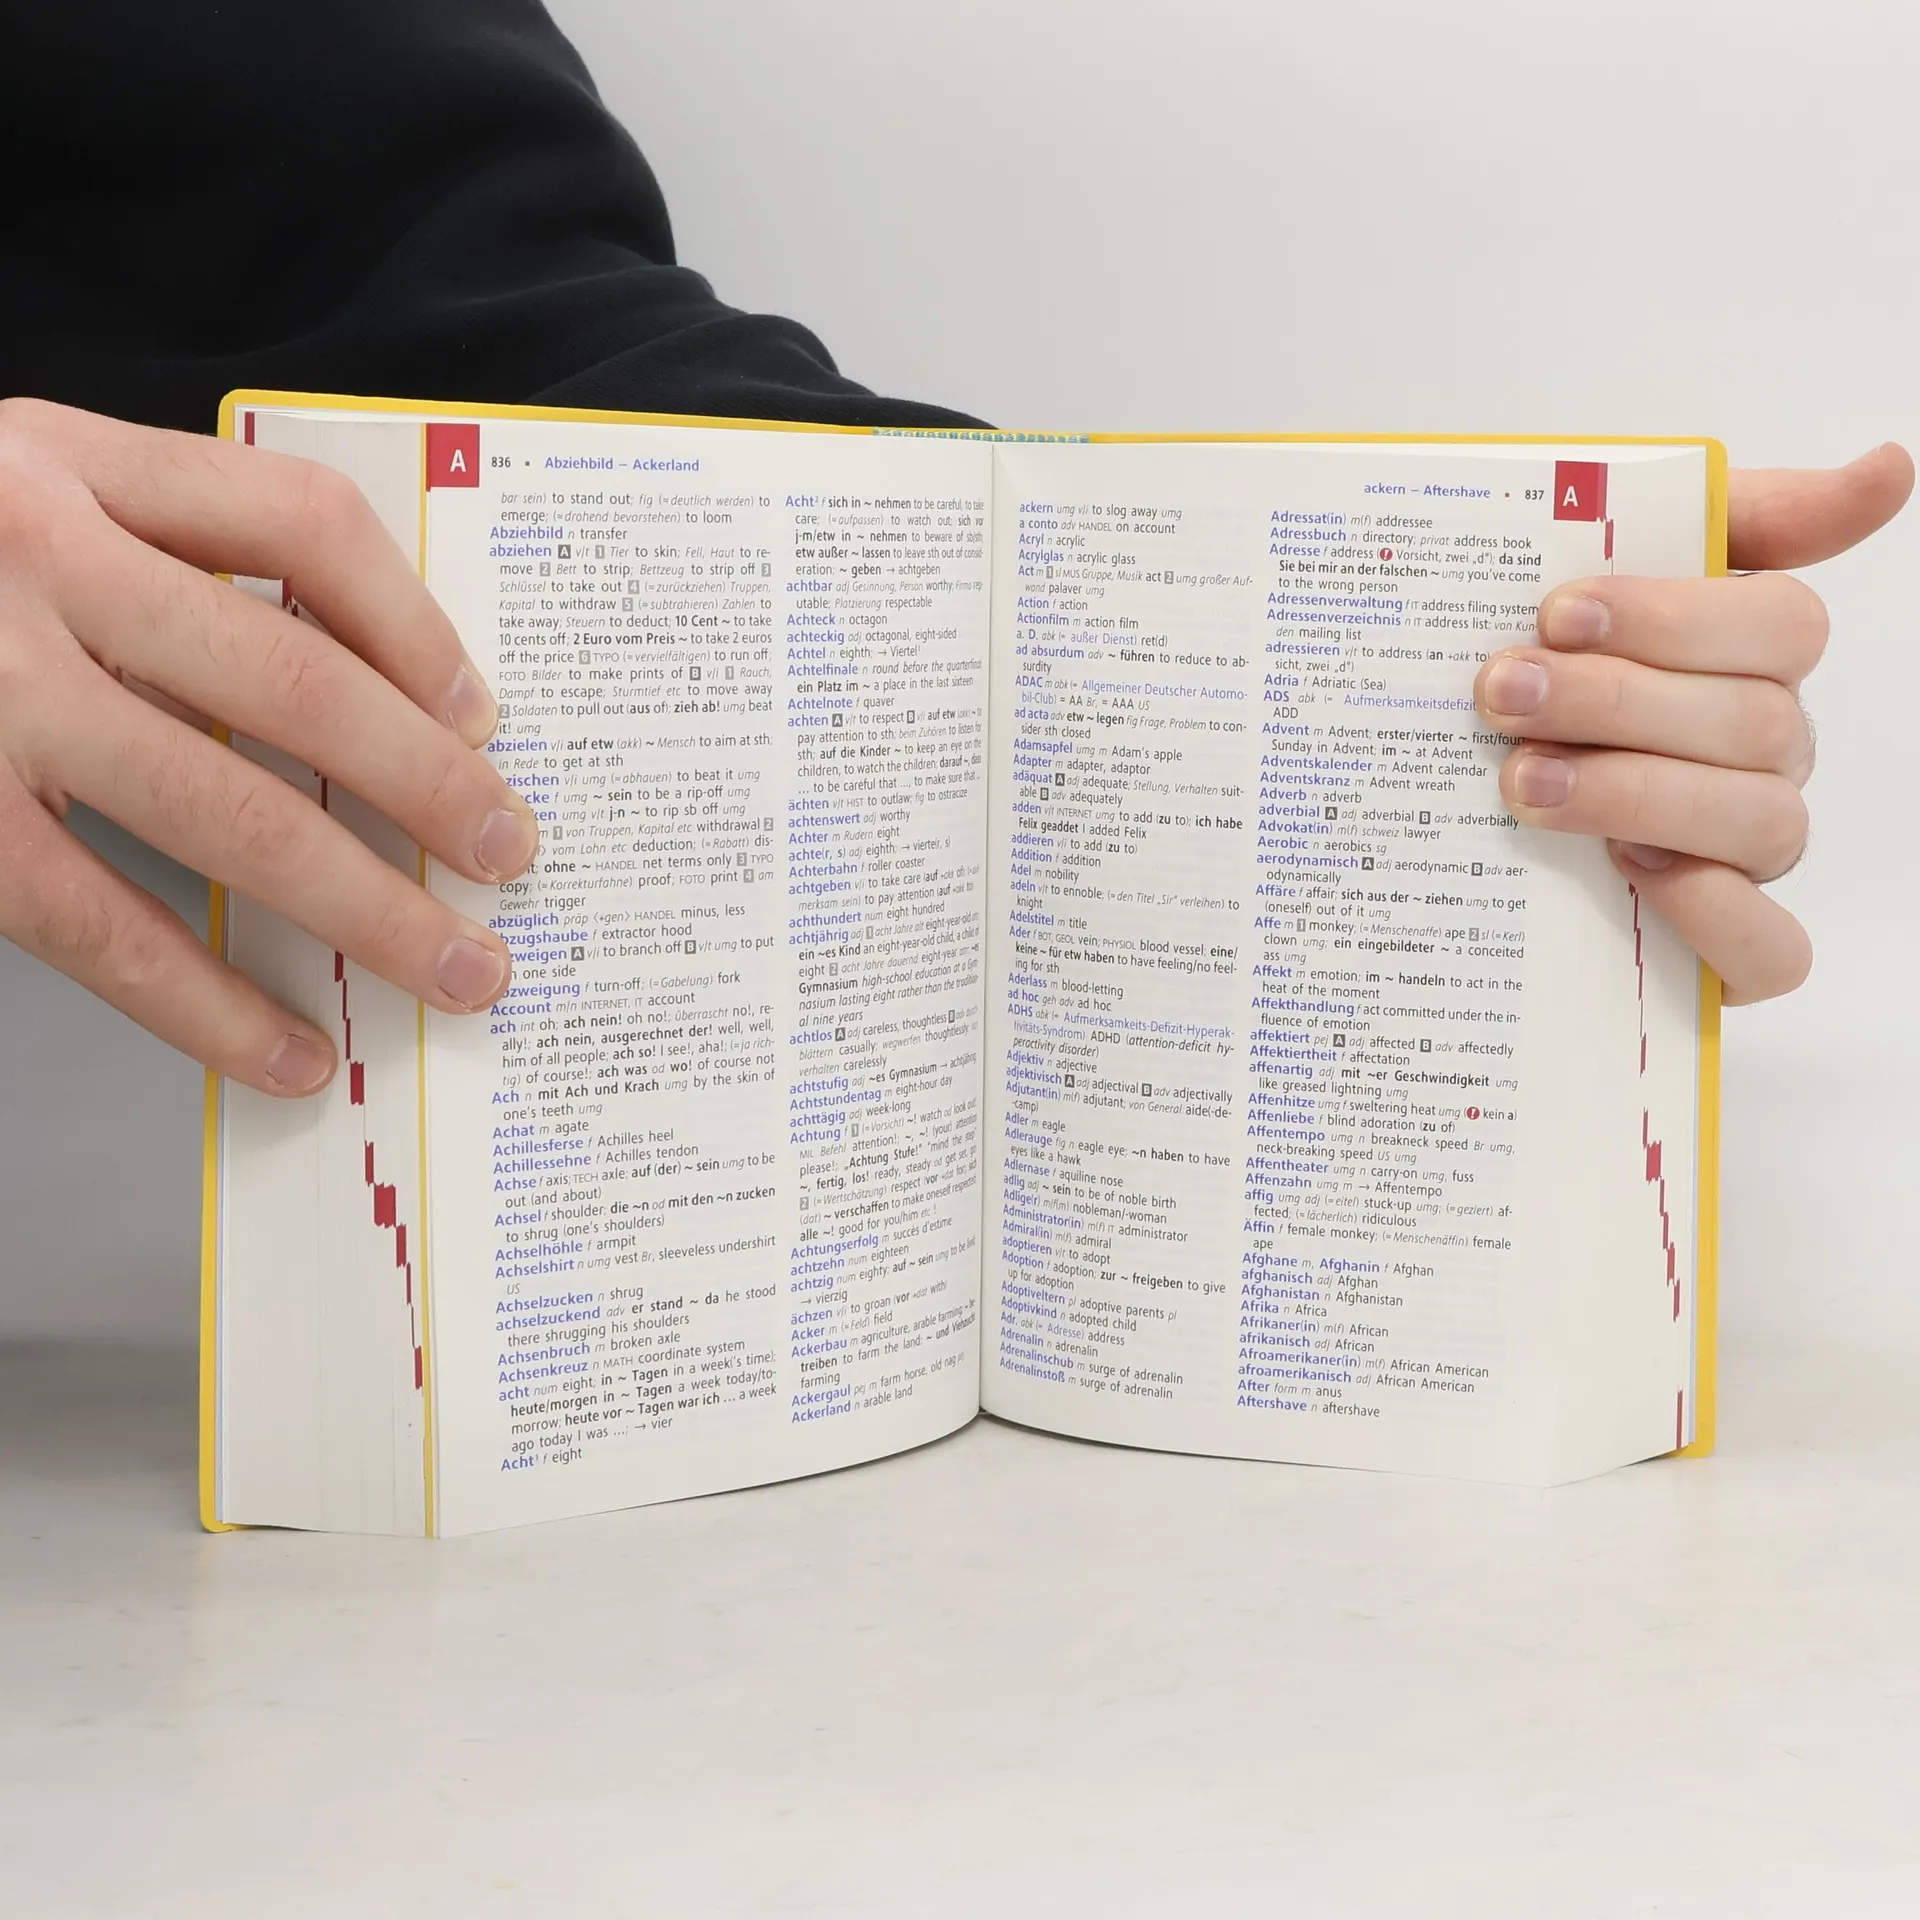 A 836 ▪ Abziehbild – Ackerland
bar sein) to stand out; fig (=deutlich werden) to
emerge; (=drohend bevorstehen) to loom
Abziehbild n transfer
abziehen A v/t 1 Tier to skin; Fell, Haut to re-
move 2 Bett to strip; Bettzeug to strip off 3
Schlüssel to take out 4 (=zurückziehen) Truppen,
Kapital to withdraw 5 (=subtrahieren) Zahlen to
take away; Steuern to deduct; 10 Cent ~ to take
10 cents off; 2 Euro vom Preis ~ to take 2 euros
off the price 6 TYPO (=vervielfältigen) to run off;
FOTO Bilder to make prints of B v/i 1 Rauch,
Dampf to escape; Sturmtief etc to move away
2 Soldaten to pull out (aus of); zieh ab! umg beat
it! umg
abzielen v/i auf etw (akk) ~ Mensch to aim at sth;
in Rede to get at sth
zischen v/i umg (=abhauen) to beat it umg
cke f umg ~ sein to be a rip-off umg
ken umg v/t j-n ~ to rip sb off umg
m 1 von Truppen, Kapital etc withdrawal 2
vom Lohn etc deduction; (=Rabatt) dis-
t; ohne ~ HANDEL net terms only 3 TYPO
copy; (=Korrekturfahne) proof; FOTO print 4 am
Gewehr trigger
abzüglich präp (+gen) HANDEL minus, less
bzugshaube f extractor hood
zweigen A v/i to branch off B v/t umg to put
n one side
bzweigung f turn-off; (=Gabelung) fork
Account m/n INTERNET, IT account
ach int oh; ach nein! oh no!; überrascht no!, re-
ally!; ach nein, ausgerechnet der! well, well,
him of all people; ach so! I see!, aha!; (=ja rich-
tig) of course!; ach was od wo! of course not
Ach n mit Ach und Krach umg by the skin of
one's teeth umg
Achat m agate
Achillesferse f Achilles heel
Achillessehne f Achilles tendon
Achse f axis; TECH axle; auf (der) ~ sein umg to be
out (and about)
Achsel f shoulder; die ~n od mit den ~n zucken
to shrug (one's shoulders)
Achselhöhle f armpit
Achselshirt n umg vest Br, sleeveless undershirt
US
Achselzucken n shrug
achselzuckend adv er stand ~ da he stood
there shrugging his shoulders
Achsenbruch m broken axle
Achsenkreuz n MATH coordinate system
acht num eight; in ~ Tagen in a week('s time);
heute/morgen in ~ Tagen a week today/to-
morrow; heute vor ~ Tagen war ich ... a week
ago today I was ...; → vier
Acht¹ f eight
Acht² f sich in ~ nehmen to be careful, to take
care; (=aufpassen) to watch out; sich vor
j-m/etw in ~ nehmen to beware of sb/sth;
etw außer ~ lassen to leave sth out of consid-
eration; ~ geben → achtgeben
achtbar adj Gesinnung, Person worthy; Firma rep-
utable; Platzierung respectable
Achteck n octagon
achteckig adj octagonal, eight-sided
Achtel n eighth; → Viertel¹
Achtelfinale n round before the quarterfinal
ein Platz im ~ a place in the last sixteen
Achtelnote f quaver
achten A v/t to respect B v/i auf etw (akk) ~ to
pay attention to sth; beim Zuhören to listen for
sth; auf die Kinder ~ to keep an eye on the
children, to watch the children; darauf ~, dass
... to be careful that ..., to make sure that ...
ächten v/t HIST to outlaw; fig to ostracize
achtenswert adj worthy
Achter m Rudern eight
achte(r, s) adj eighth; → vierte(r, s)
Achterbahn f roller coaster
achtgeben v/i to take care (auf +akk of);
merksam sein) to pay attention (auf +akk to)
achthundert num eight hundred
achtjährig adj 1 acht Jahre alt eight-year-old
ein ~es Kind an eight-year-old child, a child of
eight 2 acht Jahre dauernd eight-year
Gymnasium high-school education at a Gym-
nasium lasting eight rather than the tradition-
al nine years
achtlos A adj careless, thoughtless B adv durch
blättern casually; wegwerfen thoughtlessly; sich
verhalten carelessly
achtstufig adj ~es Gymnasium → achtjährig
Achtstundentag m eight-hour day
achttägig adj week-long
Achtung f 1 (=Vorsicht) ~! watch od look out!
MIL Befehl attention!; ~, ~! (your) attention
please!; „Achtung Stufe!" "mind the step"
~, fertig, los! ready, steady od get set, go
2 (=Wertschätzung) respect (vor +dat for); sich
(dat) ~ verschaffen to make oneself respected
alle ~! good for you/him etc!
Achtungserfolg m succès d'estime
achtzehn num eighteen
achtzig num eighty; auf ~ sein umg to be livid
→ vierzig
ächzen v/i to groan (vor +dat with)
Acker m (=Feld) field
Ackerbau m agriculture, arable farming ~ be
treiben to farm the land; ~ und Viehzucht
farming
Ackergaul pej m farm horse, old nag pej
Ackerland n arable land
ackern – Aftershave ▪ 837 A
ackern umg v/i to slog away umg
a conto adv HANDEL on account
Acryl n acrylic
Acrylglas n acrylic glass
Act m 1 sl MUS Gruppe, Musik act 2 umg großer Auf-
wand palaver umg
Action f action
Actionfilm m action film
a. D. abk (= außer Dienst) ret(d)
ad absurdum adv ~ führen to reduce to ab-
surdity
ADAC m abk (= Allgemeiner Deutscher Automo-
bil-Club) = AA Br, = AAA US
ad acta adv etw ~ legen fig Frage, Problem to con-
sider sth closed
Adamsapfel umg m Adam's apple
Adapter m adapter, adaptor
adäquat A adj adequate; Stellung, Verhalten suit-
able B adv adequately
adden v/t INTERNET umg to add (zu to); ich habe
Felix geaddet I added Felix
addieren v/i to add (zu to)
Addition f addition
Adel m nobility
adeln v/t to ennoble; (=den Titel „Sir" verleihen) to
knight
Adelstitel m title
Ader f BOT, GEOL vein; PHYSIOL blood vessel; eine/
keine ~ für etw haben to have feeling/no feel-
ing for sth
Aderlass m blood-letting
ad hoc geh adv ad hoc
ADHS abk (= Aufmerksamkeits-Defizit-Hyperak-
tivitäts-Syndrom) ADHD (attention-deficit hy-
peractivity disorder)
Adjektiv n adjective
adjektivisch A adj adjectival B adv adjectivally
Adjutant(in) m(f) adjutant; von General aide(-de-
-camp)
Adler m eagle
Adlerauge fig n eagle eye; ~n haben to have
eyes like a hawk
Adlernase f aquiline nose
adlig adj ~ sein to be of noble birth
Adlige(r) m/f(m) nobleman/-woman
Administrator(in) m(f) IT administrator
Admiral(in) m(f) admiral
adoptieren v/t to adopt
Adoption f adoption; zur ~ freigeben to give
up for adoption
Adoptiveltern pl adoptive parents pl
Adoptivkind n adopted child
Adr. abk (= Adresse) address
Adrenalin n adrenalin
Adrenalinschub m surge of adrenalin
Adrenalinstoß m surge of adrenalin
Adressat(in) m(f) addressee
Adressbuch n directory; privat address book
Adresse f address (! Vorsicht, zwei „d"); da sind
Sie bei mir an der falschen ~ umg you've come
to the wrong person
Adressenverwaltung f IT address filing system
Adressenverzeichnis n IT address list; von Kun-
den mailing list
adressieren v/t to address (an +akk to)
sicht, zwei „d")
Adria f Adriatic (Sea)
ADS abk (= Aufmerksamkeitsdefizit
ADD
Advent m Advent; erster/vierter ~ first/fourth
Sunday in Advent; im ~ at Advent
Adventskalender m Advent calendar
Adventskranz m Advent wreath
Adverb n adverb
adverbial A adj adverbial B adv adverbially
Advokat(in) m(f) schweiz lawyer
Aerobic n aerobics sg
aerodynamisch A adj aerodynamic B adv aer-
odynamically
Affäre f affair; sich aus der ~ ziehen umg to get
(oneself) out of it umg
Affe m 1 monkey; (=Menschenaffe) ape 2 sl (=Kerl)
clown umg; ein eingebildeter ~ a conceited
ass umg
Affekt m emotion; im ~ handeln to act in the
heat of the moment
Affekthandlung f act committed under the in-
fluence of emotion
affektiert pej A adj affected B adv affectedly
Affektiertheit f affectation
affenartig adj mit ~er Geschwindigkeit umg
like greased lightning umg
Affenhitze umg f sweltering heat umg (! kein a)
Affenliebe f blind adoration (zu of)
Affentempo umg n breakneck speed Br umg,
neck-breaking speed US umg
Affentheater umg n carry-on umg, fuss
Affenzahn umg m → Affentempo
affig umg adj (=eitel) stuck-up umg; (=geziert) af-
fected; (=lächerlich) ridiculous
Äffin f female monkey; (=Menschenäffin) female
ape
Afghane m, Afghanin f Afghan
afghanisch adj Afghan
Afghanistan n Afghanistan
Afrika n Africa
Afrikaner(in) m(f) African
afrikanisch adj African
Afroamerikaner(in) m(f) African American
afroamerikanisch adj African American
After form m anus
Aftershave n aftershave